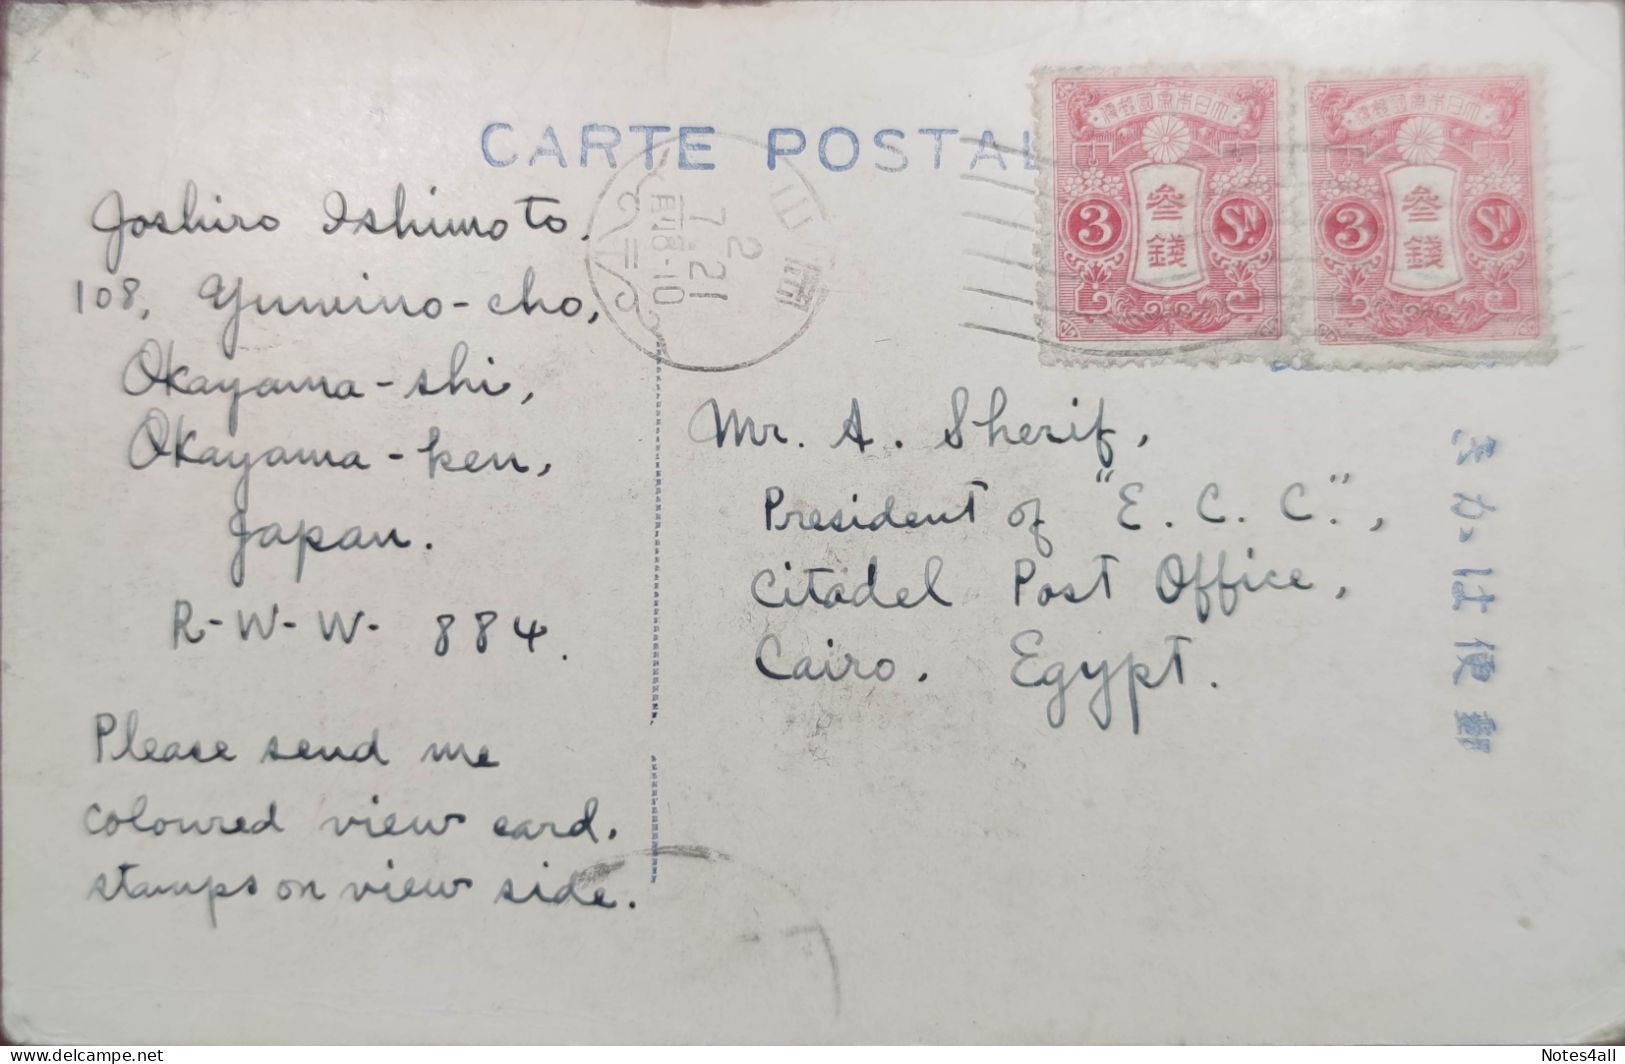 CARTE POSTAL
大日本帝國郵便
3
參錢
SN.
大日本帝國郵便
3
參錢
SN.
岡山
2
7.21
后8-10
Joshiro Ishimoto.
108,
Okayama-shi,
Okayama-ken,
Japan.
R-W-W- 884.
Please send me
coloured view card.
stamps on view side.
Mr. A. Sherif,
President of "E. C. C.",
Citadel Post Office,
Cairo. Egypt.
郵便はかき
Notes4all